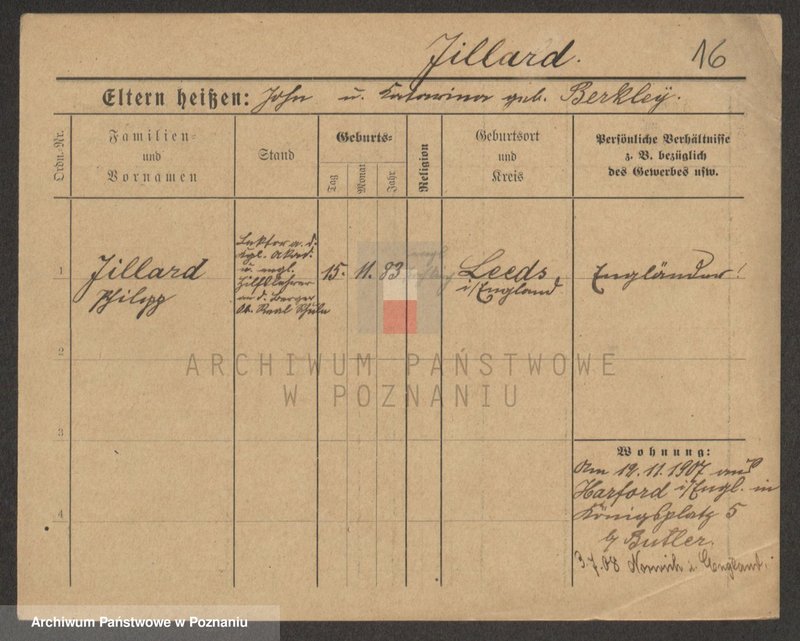 Jillard. 16
Eltern heißen: John u. Katarina geb. Berkley.
Ordn.-Nr.
Familien- und Vornamen
Stand
Geburts-
Tag
Monat
Jahr
Religion
Geburtsort und Kreis
Persönliche Verhältnisse
z. B. bezüglich
des Gewerbes usw.
1
Jillard
Philipp
Lektor a. d.
kgl. Akad.
u. engl.
Hilfslehrer
an d. Berger
Ob. Real Schule
15. 11. 83
Leeds
i/England
Engländer!
2
3
4
Wohnung:
Am 12.11.1907 aus
Harford i/Engl. in
Königsplatz 5
b/ Butler.
3.7.08 i. England.
ARCHIWUM PAŃSTWOWE
W POZNANIU
Archiwum Państwowe w Poznaniu